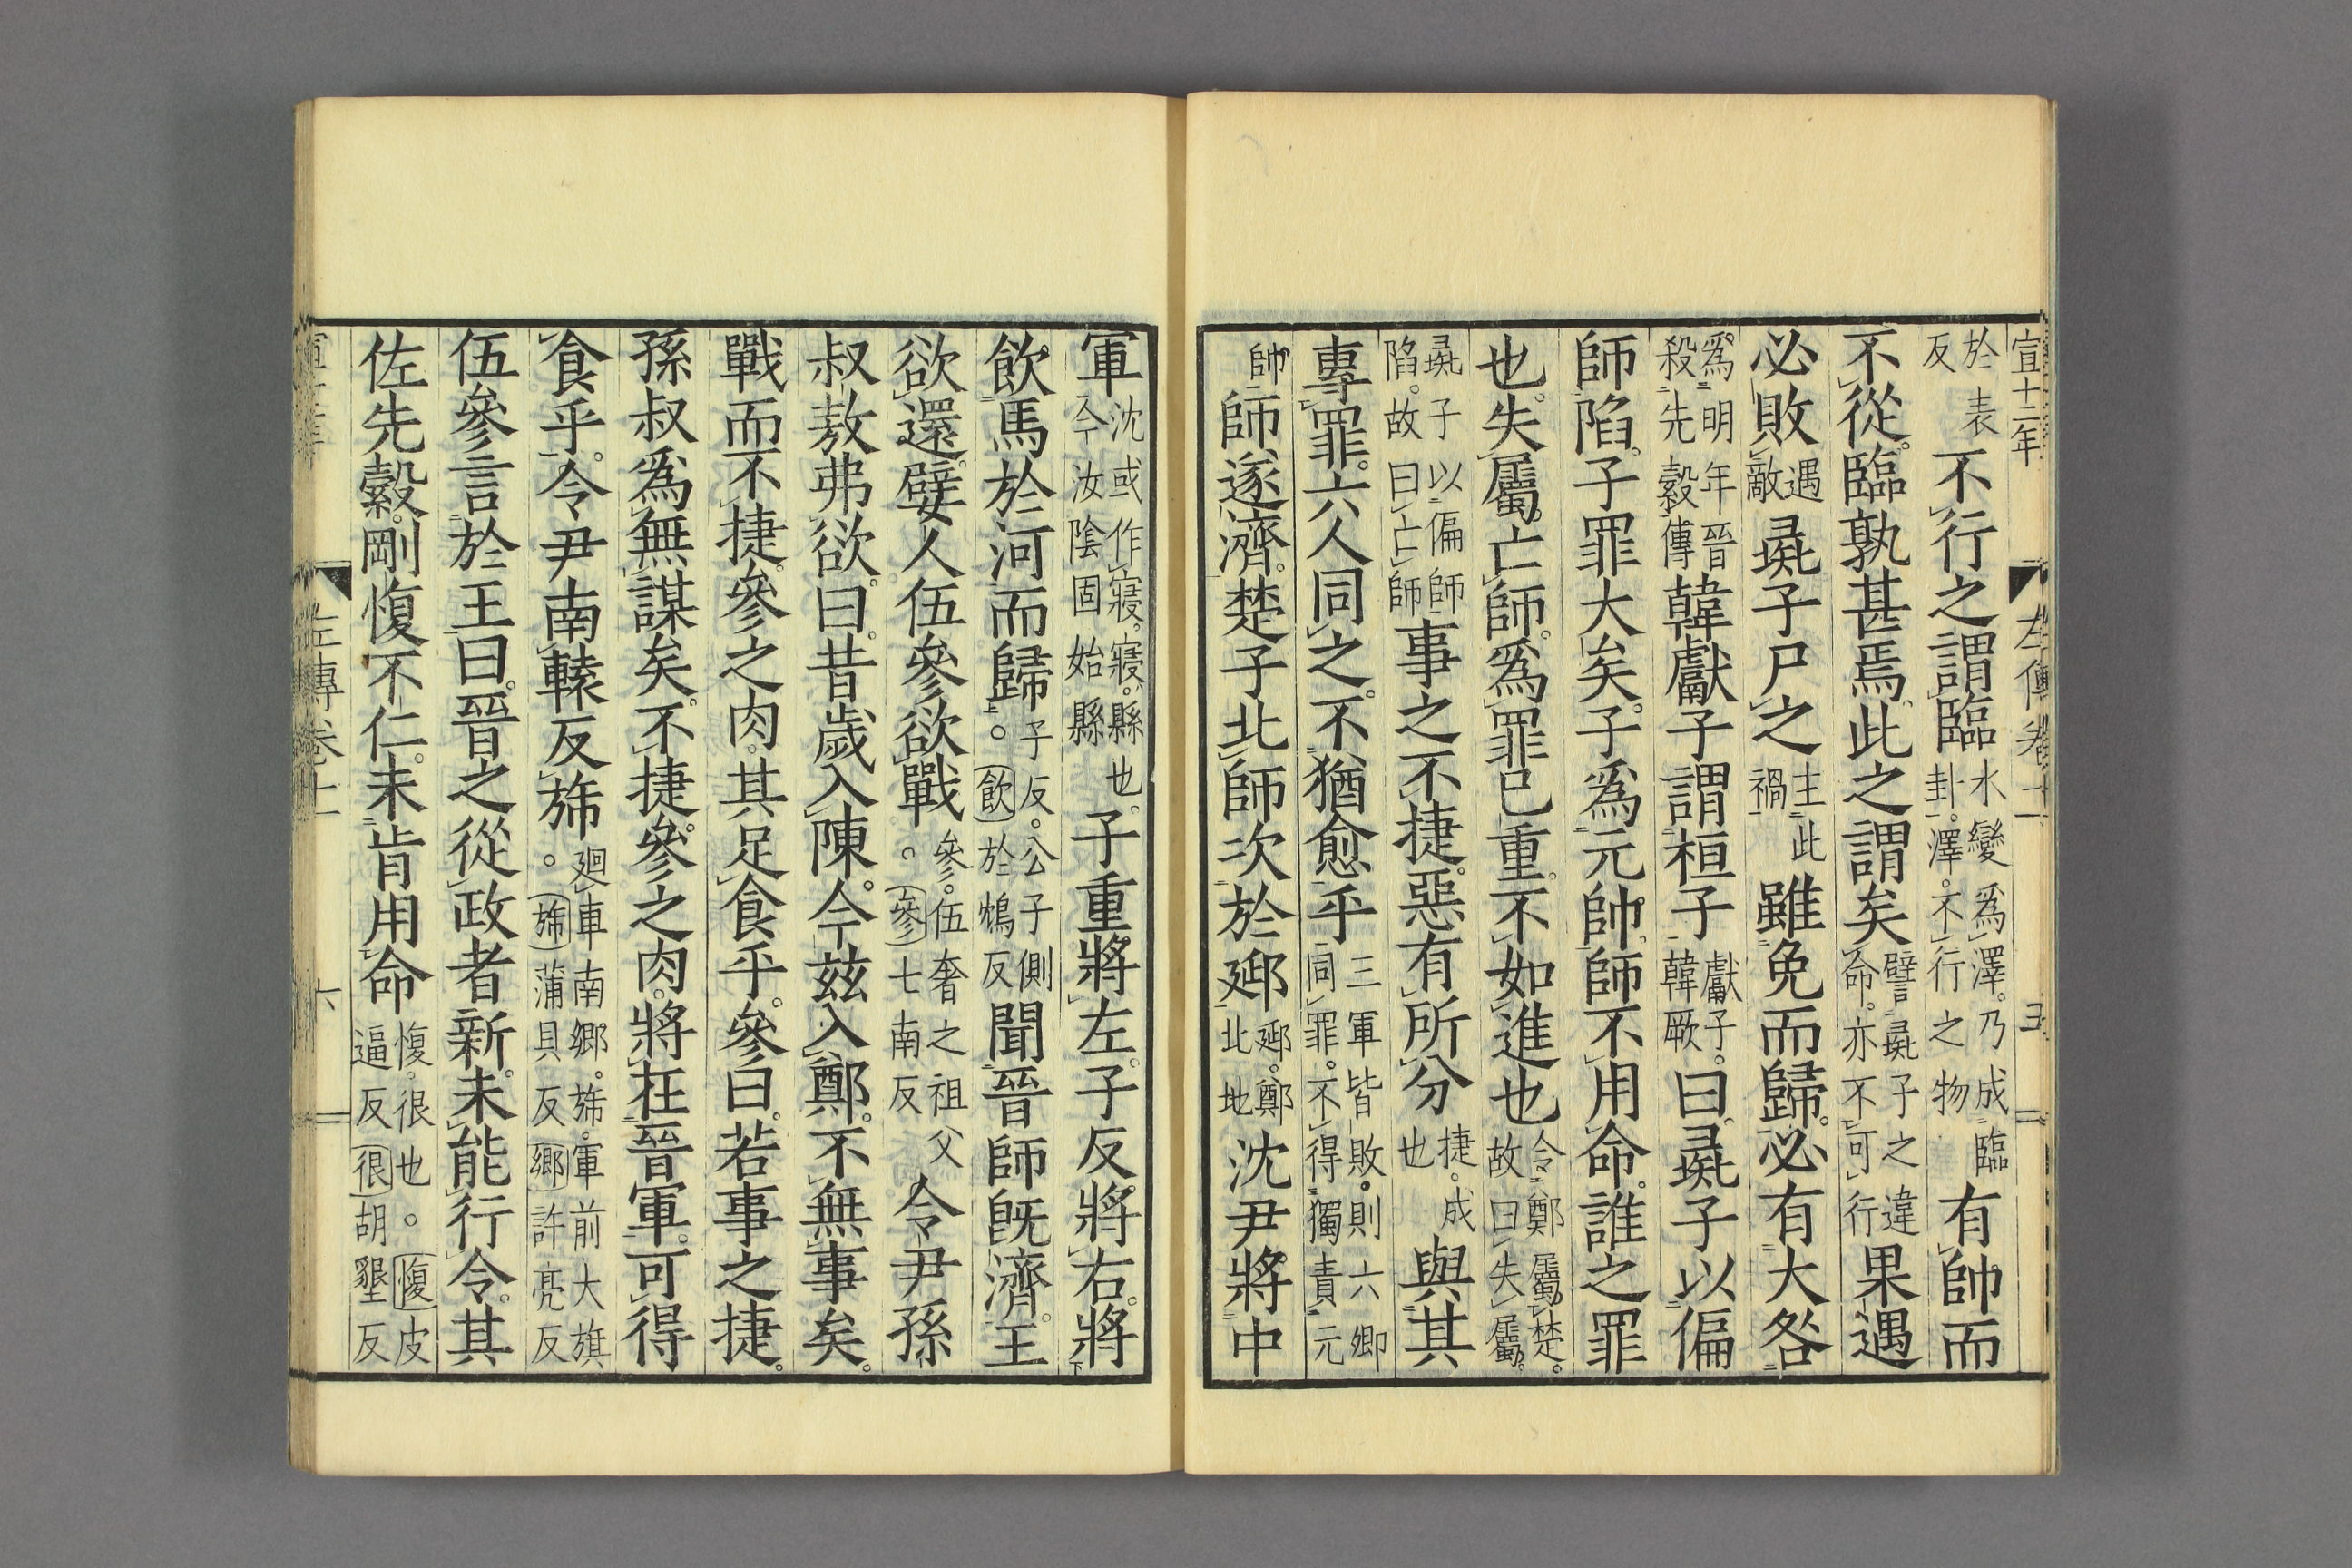 宣十二年
左傳卷十一
五
於表反不行之謂臨水變爲澤。乃成臨卦。澤。不行之物有帥而
不從。臨孰甚焉。此之謂矣譬彘子之違命。亦不可行果遇
必敗遇敵彘子尸之主此禍雖免而歸。必有大咎
爲明年晉殺先縠傳韓獻子謂桓子獻子。韓厥曰。彘子以偏
師陷。子罪大矣。子爲元帥。師不用命。誰之罪
也。失屬。亡師。爲罪已重。不如進也令鄭屬楚。故曰失屬。
彘子以偏師陷。故曰亡師事之不捷。惡有所分捷。成也與其
專罪。六人同之。不猶愈乎三軍皆敗。則六卿同罪。不得獨責元
帥師遂濟。楚子北師次於郔郔。鄭北地沈尹將中
軍沈或作寢。寢。縣也。今汝陰固始縣子重將左。子反將右。將
飲馬於河而歸子反。公子側。飲於鴆反聞晉師旣濟。王
欲還。嬖人伍參欲戰參。伍奢之祖父。參七南反令尹孫
叔敖弗欲。曰。昔歲入陳。今兹入鄭。不無事矣。
戰而不捷。參之肉。其足食乎。參曰。若事之捷。
孫叔爲無謀矣。不捷。參之肉。將在晉軍。可得
食乎。令尹南轅反旆廻車南鄉。旆。軍前大旗。旆蒲貝反鄉許亮反
伍參言於王曰。晉之從政者新。未能行令。其
佐先縠。剛愎不仁。未肯用命愎。很也。愎皮逼反很胡墾反
左傳卷十一
六